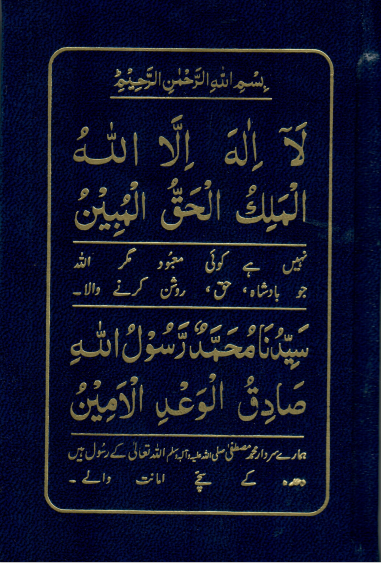 بِسْمِ اللهِ الرَّحْمٰنِ الرَّحِيْمِ
لَآ اِلٰهَ اِلَّا اللهُ
الْمَلِكُ الْحَقُّ الْمُبِيْنُ
نہیں ہے کوئی معبود مگر اللہ
جو بادشاہ، حق، روشن کرنے والا۔
سَيِّدُنَا مُحَمَّدٌ رَّسُوْلُ اللهِ
صَادِقُ الْوَعْدِ الْاَمِيْنُ
ہمارے سردار محمد مصطفیٰ صلی اللہ علیہ وآلہ وسلم اللہ تعالیٰ کے رسول ہیں
وعدہ کے سچے امانت والے۔